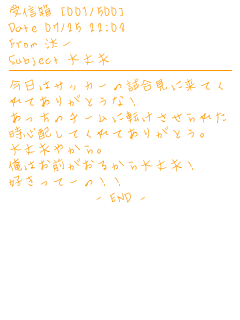 受信箱 [001/500]
Date 07/25 22:07
From 法一
Subject 大丈夫
今日はサッカーの試合見に来てく
れてありがとうな!
あっちのチームに転けさせられた
時心配してくれてありがとう。
大丈夫やから。
俺はお前がおるから大丈夫!
好きってーの!!
- END -